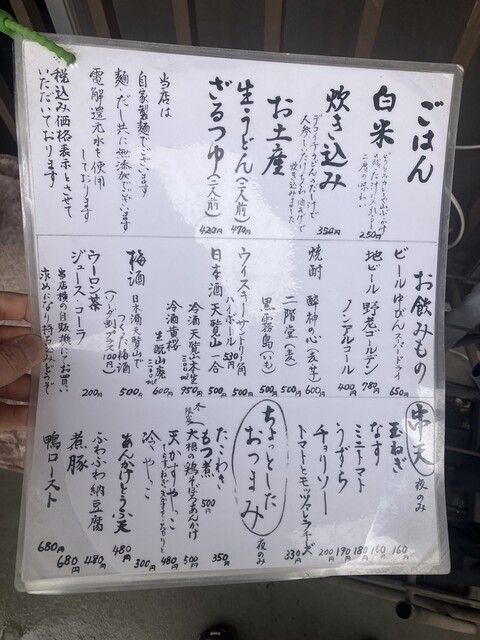 ごはん
白米
250円
炊き込み
350円
お土産
生・うどん（二人前）
470円
ざるつゆ（二人前）
420円
当店は
自家製麺でございます
麺・だし共に無添加でございます
電解還元水を使用
しております
※税込み価格表示とさせて
いただいております
お飲みもの
ビール中びん スーパードライ
650円
地ビール 野老ゴールデン
780円
ノンアルコール
400円
焼酎
酔神の心（麦・芋）
600円
二階堂（麦）
500円
黒霧島（いも）
500円
ウイスキー サントリー角
500円
ハイボール 530円
日本酒 天覧山 一合
500円
冷酒 天覧山 本生
950円
冷酒 黄桜
生酛山廃
300ml
梅酒
日本酒 天覧山で
つくった梅酒
500円
（ソーダ割りプラス100円）
ウーロン茶
200円
ジュース・コーラ
当店横の自販機にてお買い
求めになり持ち込みどうぞ
串天 夜のみ
玉ねぎ
160円
なす
160円
ミニトマト
180円
うずら
190円
チョリソー
200円
トマトとモッツァレラチーズ
330円
ちょっとした
おつまみ 夜のみ
たこわさ
350円
もつ煮
500円
冬限定
大根の鶏そぼろあんかけ
500円
天かすやっこ
480円
冷やっこ
300円
あんかけとうふ天
480円
ふわふわ納豆腐
480円
煮豚
680円
鴨ロースト
680円